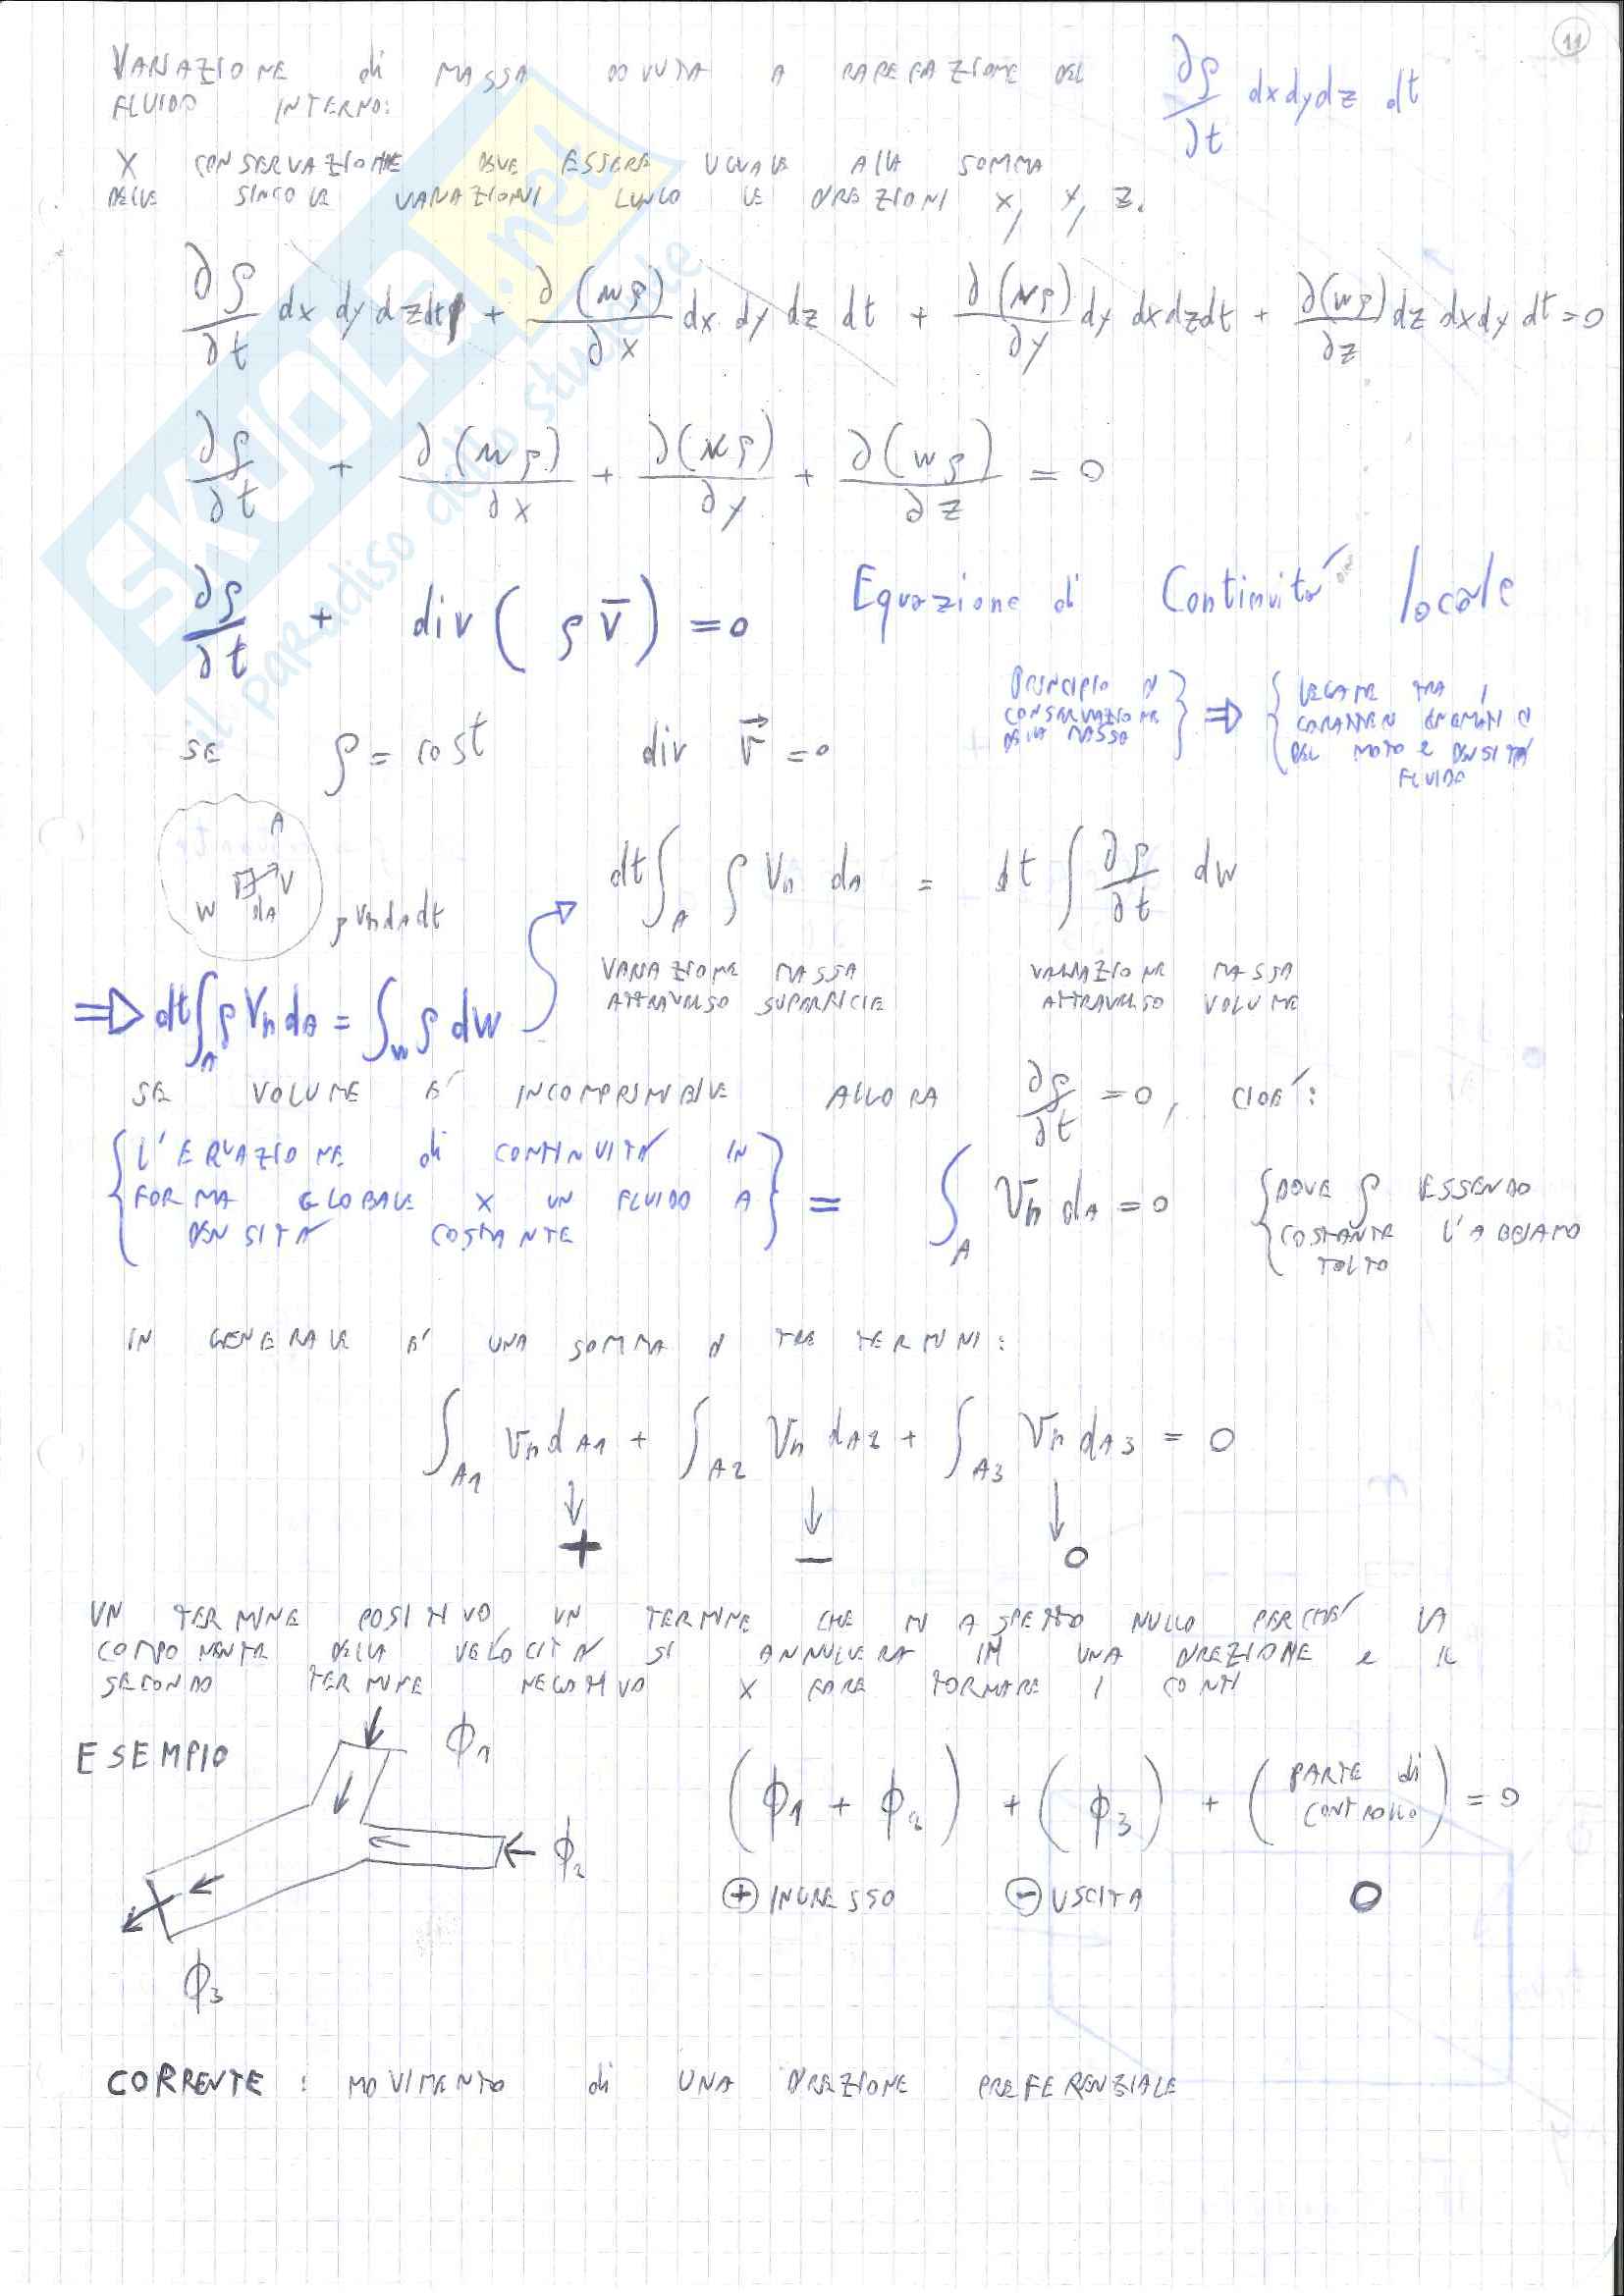 11
VARIAZIONE di MASSA DOVUTA A RAREFAZIONE DEL
FLUIDO INTERNO: ∂ρ/∂t dxdydz dt
X CONSERVAZIONE DEVE ESSERE UGUALE ALLA SOMMA
DELLE SINGOLE VARIAZIONI LUNGO LE DIREZIONI x, y, z.
∂ρ/∂t dx dy dz dt + ∂(uρ)/∂x dx dy dz dt + ∂(vρ)/∂y dy dx dz dt + ∂(wρ)/∂z dz dx dy dt = 0
∂ρ/∂t + ∂(uρ)/∂x + ∂(vρ)/∂y + ∂(wρ)/∂z = 0
∂ρ/∂t + div(ρv̄) = 0 Equazione di Continuità locale
PRINCIPIO DI
CONSERVAZIONE
DELLA MASSA
⇒
LEGAME TRA I
CARATTERI CINEMATICI
DEL MOTO e DENSITÀ
FLUIDO
SE ρ = cost div v⃗ = 0
A
W dA V
ρ Vn dA dt
dt ∫A ρ Vn dA = dt ∫ ∂ρ/∂t dW
VARIAZIONE MASSA
ATTRAVERSO SUPERFICIE
VARIAZIONE MASSA
ATTRAVERSO VOLUME
⇒ dt ∫A ρ Vn dA = ∫W ρ dW
SE VOLUME E' INCOMPRIMIBILE ALLORA ∂ρ/∂t = 0, CIOE':
L'EQUAZIONE di CONTINUITÀ IN
FORMA GLOBALE X UN FLUIDO A
DENSITÀ COSTANTE
= ∫A Vn dA = 0
DOVE ρ ESSENDO
COSTANTE L'ABBIAMO
TOLTO
IN GENERALE E' UNA SOMMA DI TRE TERMINI:
∫A1 Vn dA1 + ∫A2 Vn dA2 + ∫A3 Vn dA3 = 0
↓ ↓ ↓
+ − 0
UN TERMINE POSITIVO UN TERMINE CHE MI ASPETTO NULLO PERCHÉ LA
COMPONENTE DELLA VELOCITÀ SI ANNULLERÀ IN UNA DIREZIONE e IL
SECONDO TERMINE NEGATIVO X FARE TORNARE I CONTI
ESEMPIO
ϕ1
ϕ2
ϕ3
(ϕ1 + ϕ2) + (ϕ3) + (PARTE di CONTROLLO) = 0
⊕ INGRESSO ⊖ USCITA 0
CORRENTE: MOVIMENTO di UNA DIREZIONE PREFERENZIALE
SKUOLA.net
il paradiso dello studente